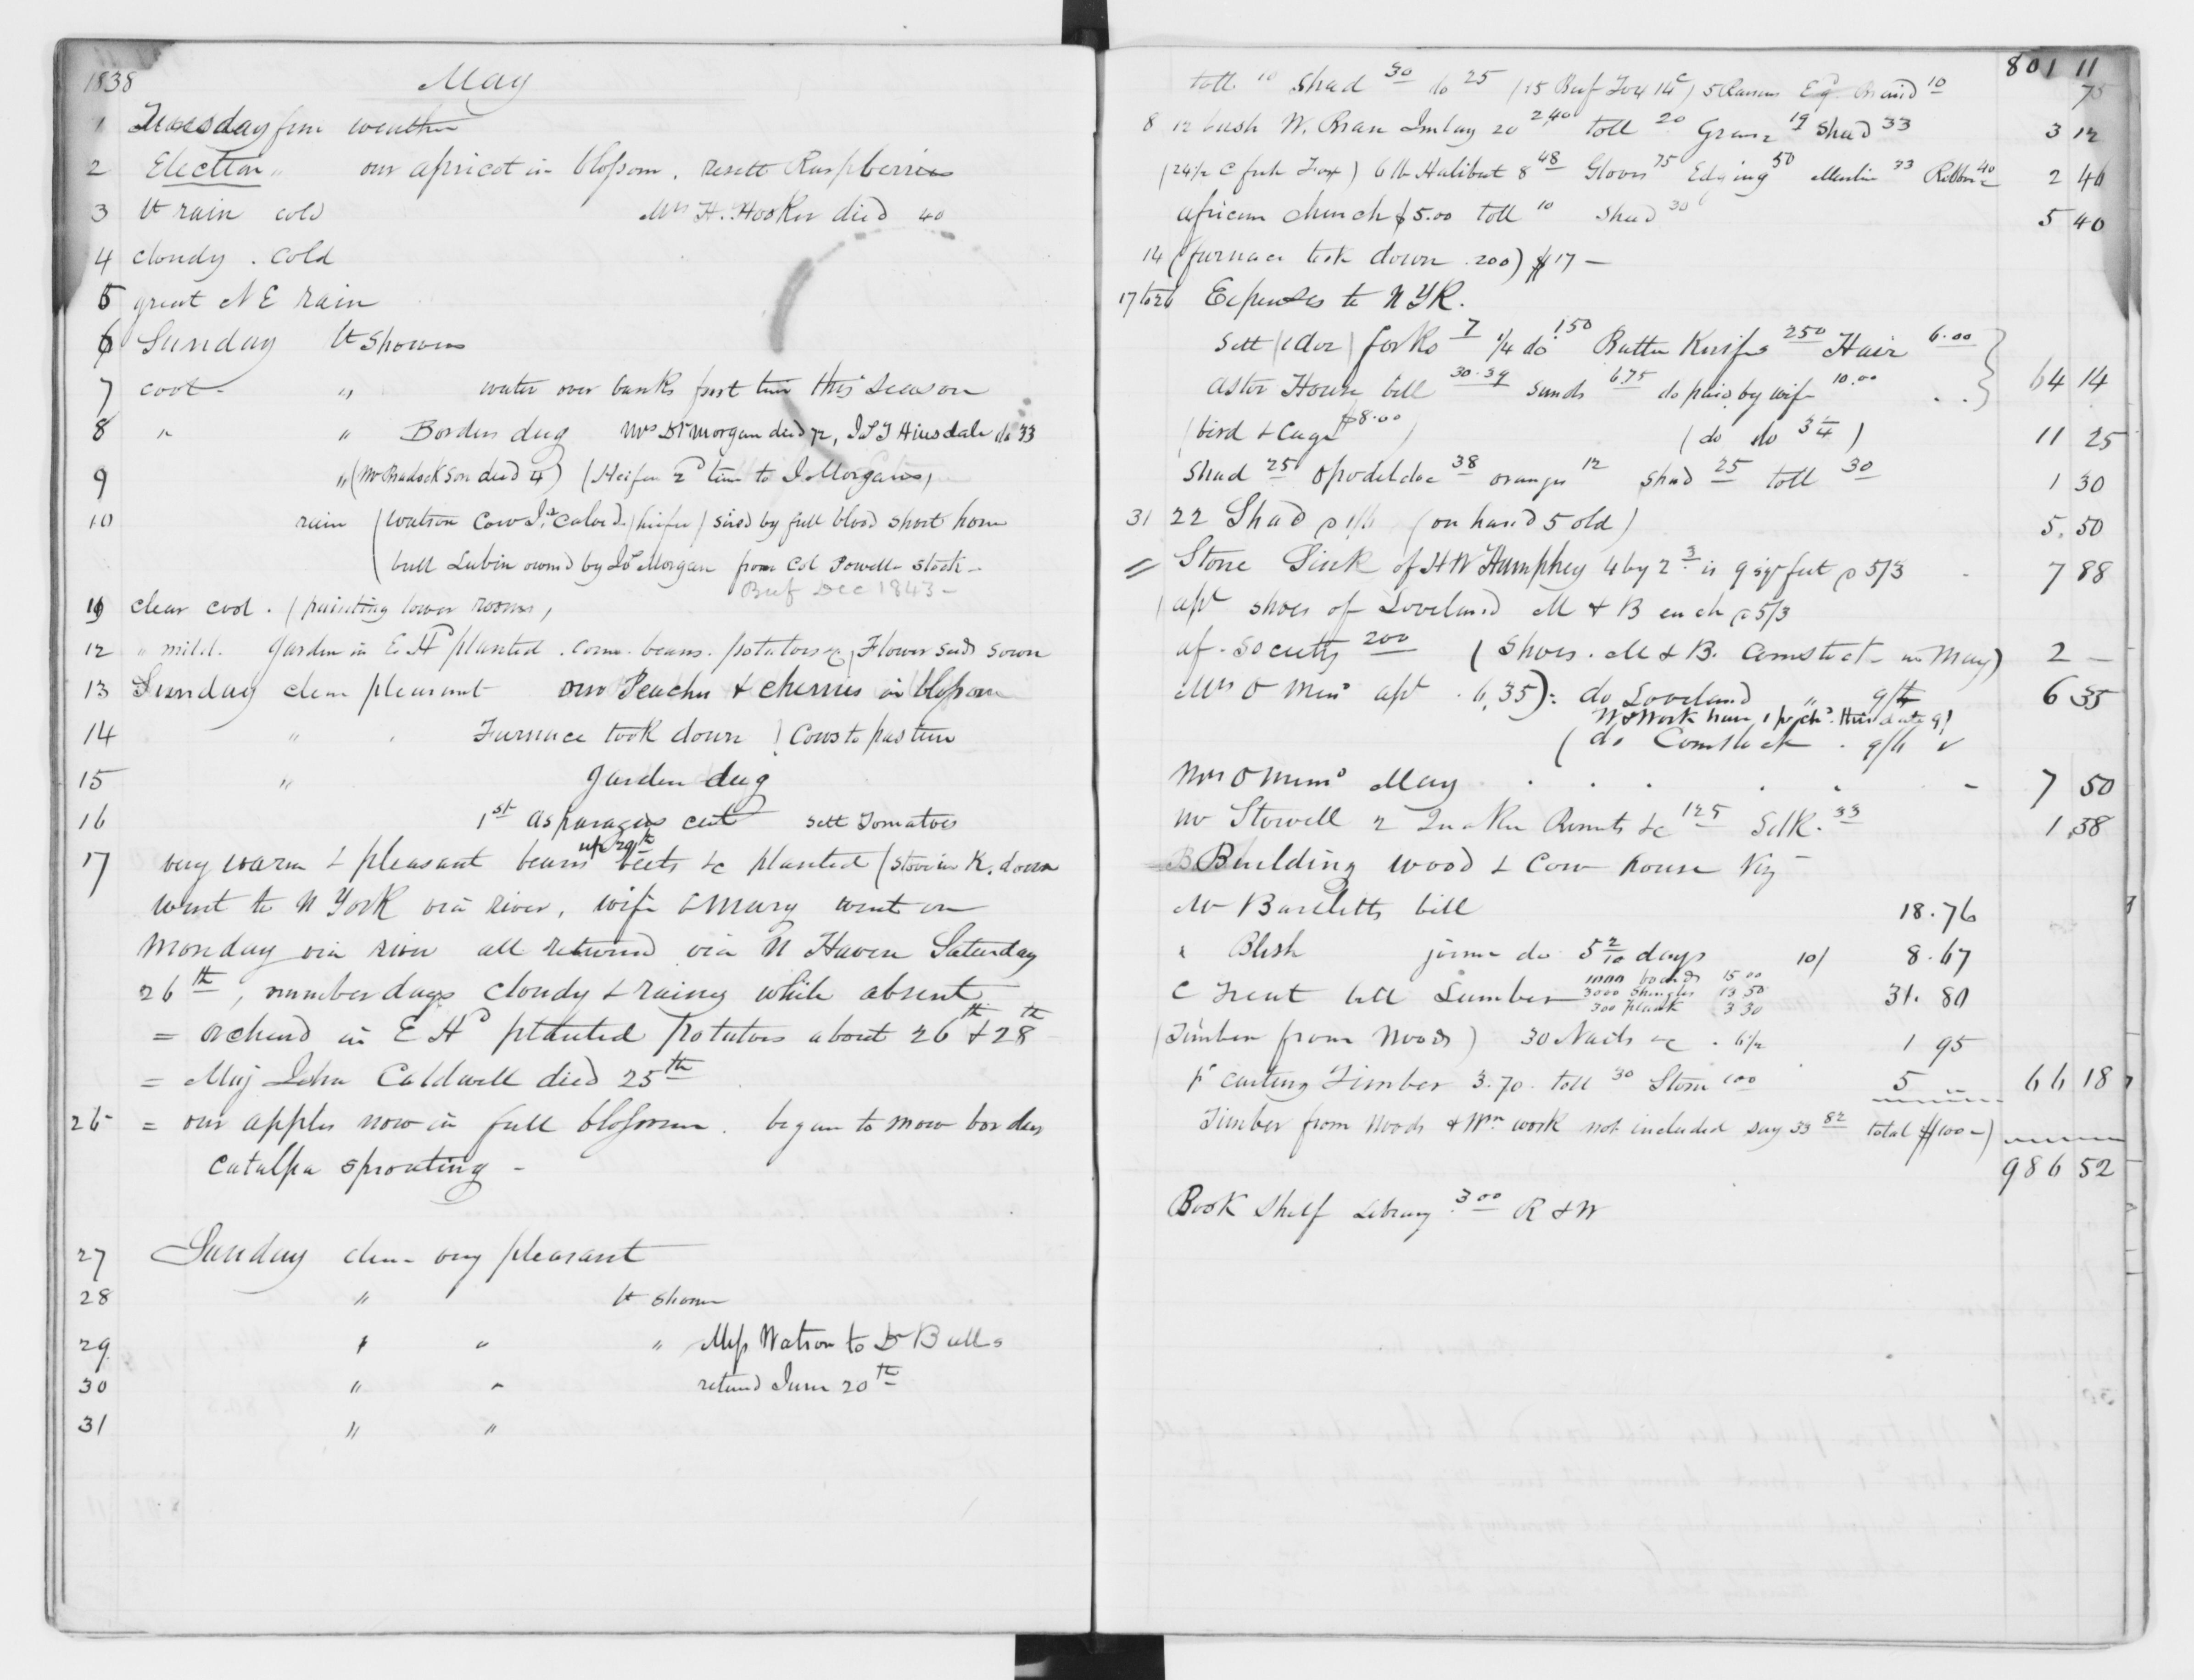 1838 May
1 Tuesday fine weather
2 Election " our apricot in blossom. resett Raspberries
3 lt rain cold Mrs H. Hooker died 40
4 cloudy. cold
5 great N E rain
6 Sunday lt showers
7 cool " water over banks first time this season
8 " " Borders dug Mrs Dr Morgan died 72, Hinsdale do 33
9 " (Mr Son died 4) (Heifer 2d time to J Morgans)
10 rain (Watson Cow heifer) sired by full blood short horn
bull Lubin owned by Js Morgan from Col Powells stock -
Beef Dec 1843 -
11 clear cool. (painting lower rooms)
12 " mild. garden in E Hd planted. corn. beans. potatoes &c, Flower seeds sown
13 Sunday clear pleasant our Peaches & cherries in blossom
14 " " Furnace took down) Cows to pasture
15 " garden dug
16 1st asparagus cut sett Tomatoes
up 29th
17 very warm & pleasant beans beets &c planted (stove in K. down
went to N York via river, wife & Mary went on
Monday via river all returned via N Haven Saturday
26th, number days cloudy & rainy while absent
= orchard in E Hd planted potatoes about 26th & 28th
= Maj John Caldwell died 25th
26 = our apples now in full blossom. began to mow borders
Catalpa sprouting -
27 Sunday clear very pleasant
28 " lt shower
29 " " " Miss Watson to Dr Bulls
30 " " returnd June 20th
31 " "
801 11
toll 10 Shad 30 do 25 (15 Beef Fox 14c) 5 10 75
8 12 bush W. Bran Imlay 20 2.40 toll 20 19 Shad 33 3 12
(24 1/2 c Fox) 6 lb Halibut 8 48 Gloves 75 Edging 50 Muslin 33 Ribbon 40 2 46
african church $5.00 toll 10 Shad 30 5 40
14 (furnace took down. 200) $17 -
17 to 26 Expenses to N YK.
Sett (1 doz) forks 7 1/4 do 1.50 Butter Knifes 2.50 Hair 6.00
Astor House bill 30.39 sunds 6.75 do paid by wife 10.00 64 14
(bird & Cage $8.00) (do do 3 1/4) 11 25
Shad 25 Opodeldoc 38 oranges 12 Shad 25 toll 30 1 30
31 22 Shad @ 1/6 (on hand 5 old) 5.50
= Stone Sink of H W Humphrey 4 by 2 3 is 9 sqr feet @ 5/3 - 7 88
(apt shoes of Loveland M & B each @ 5/3
af. Society 200 (Shoes. M & B. Comstock - in May) 2 -
Mrs O apt. 6,35): do Loveland " 9/4 6 35
this date 9/
(do Comstock. 9/6 v
Mrs O May 7 50
Mr Stowell 2 &c 125 Silk. 33 1,38
Building wood & Cow house Viz
Mr Bartletts bill 18.76
" Blish joiner do 5 2/10 days 10/ 8.67
1000 boards 15.00
C Trent bill Lumber 3000 Shingles 13 50 31. 80
300 plank 3 30
(Timber from Woods) 30 Nails &c. 6 1/2 1 95
pd carting Timber 3.70. toll 30 Stone 100 5 " 66 18
Timber from Woods & Wm work not included say 33 82 total $100 -)
986 52
Book Shelf Library 3.00 R & W